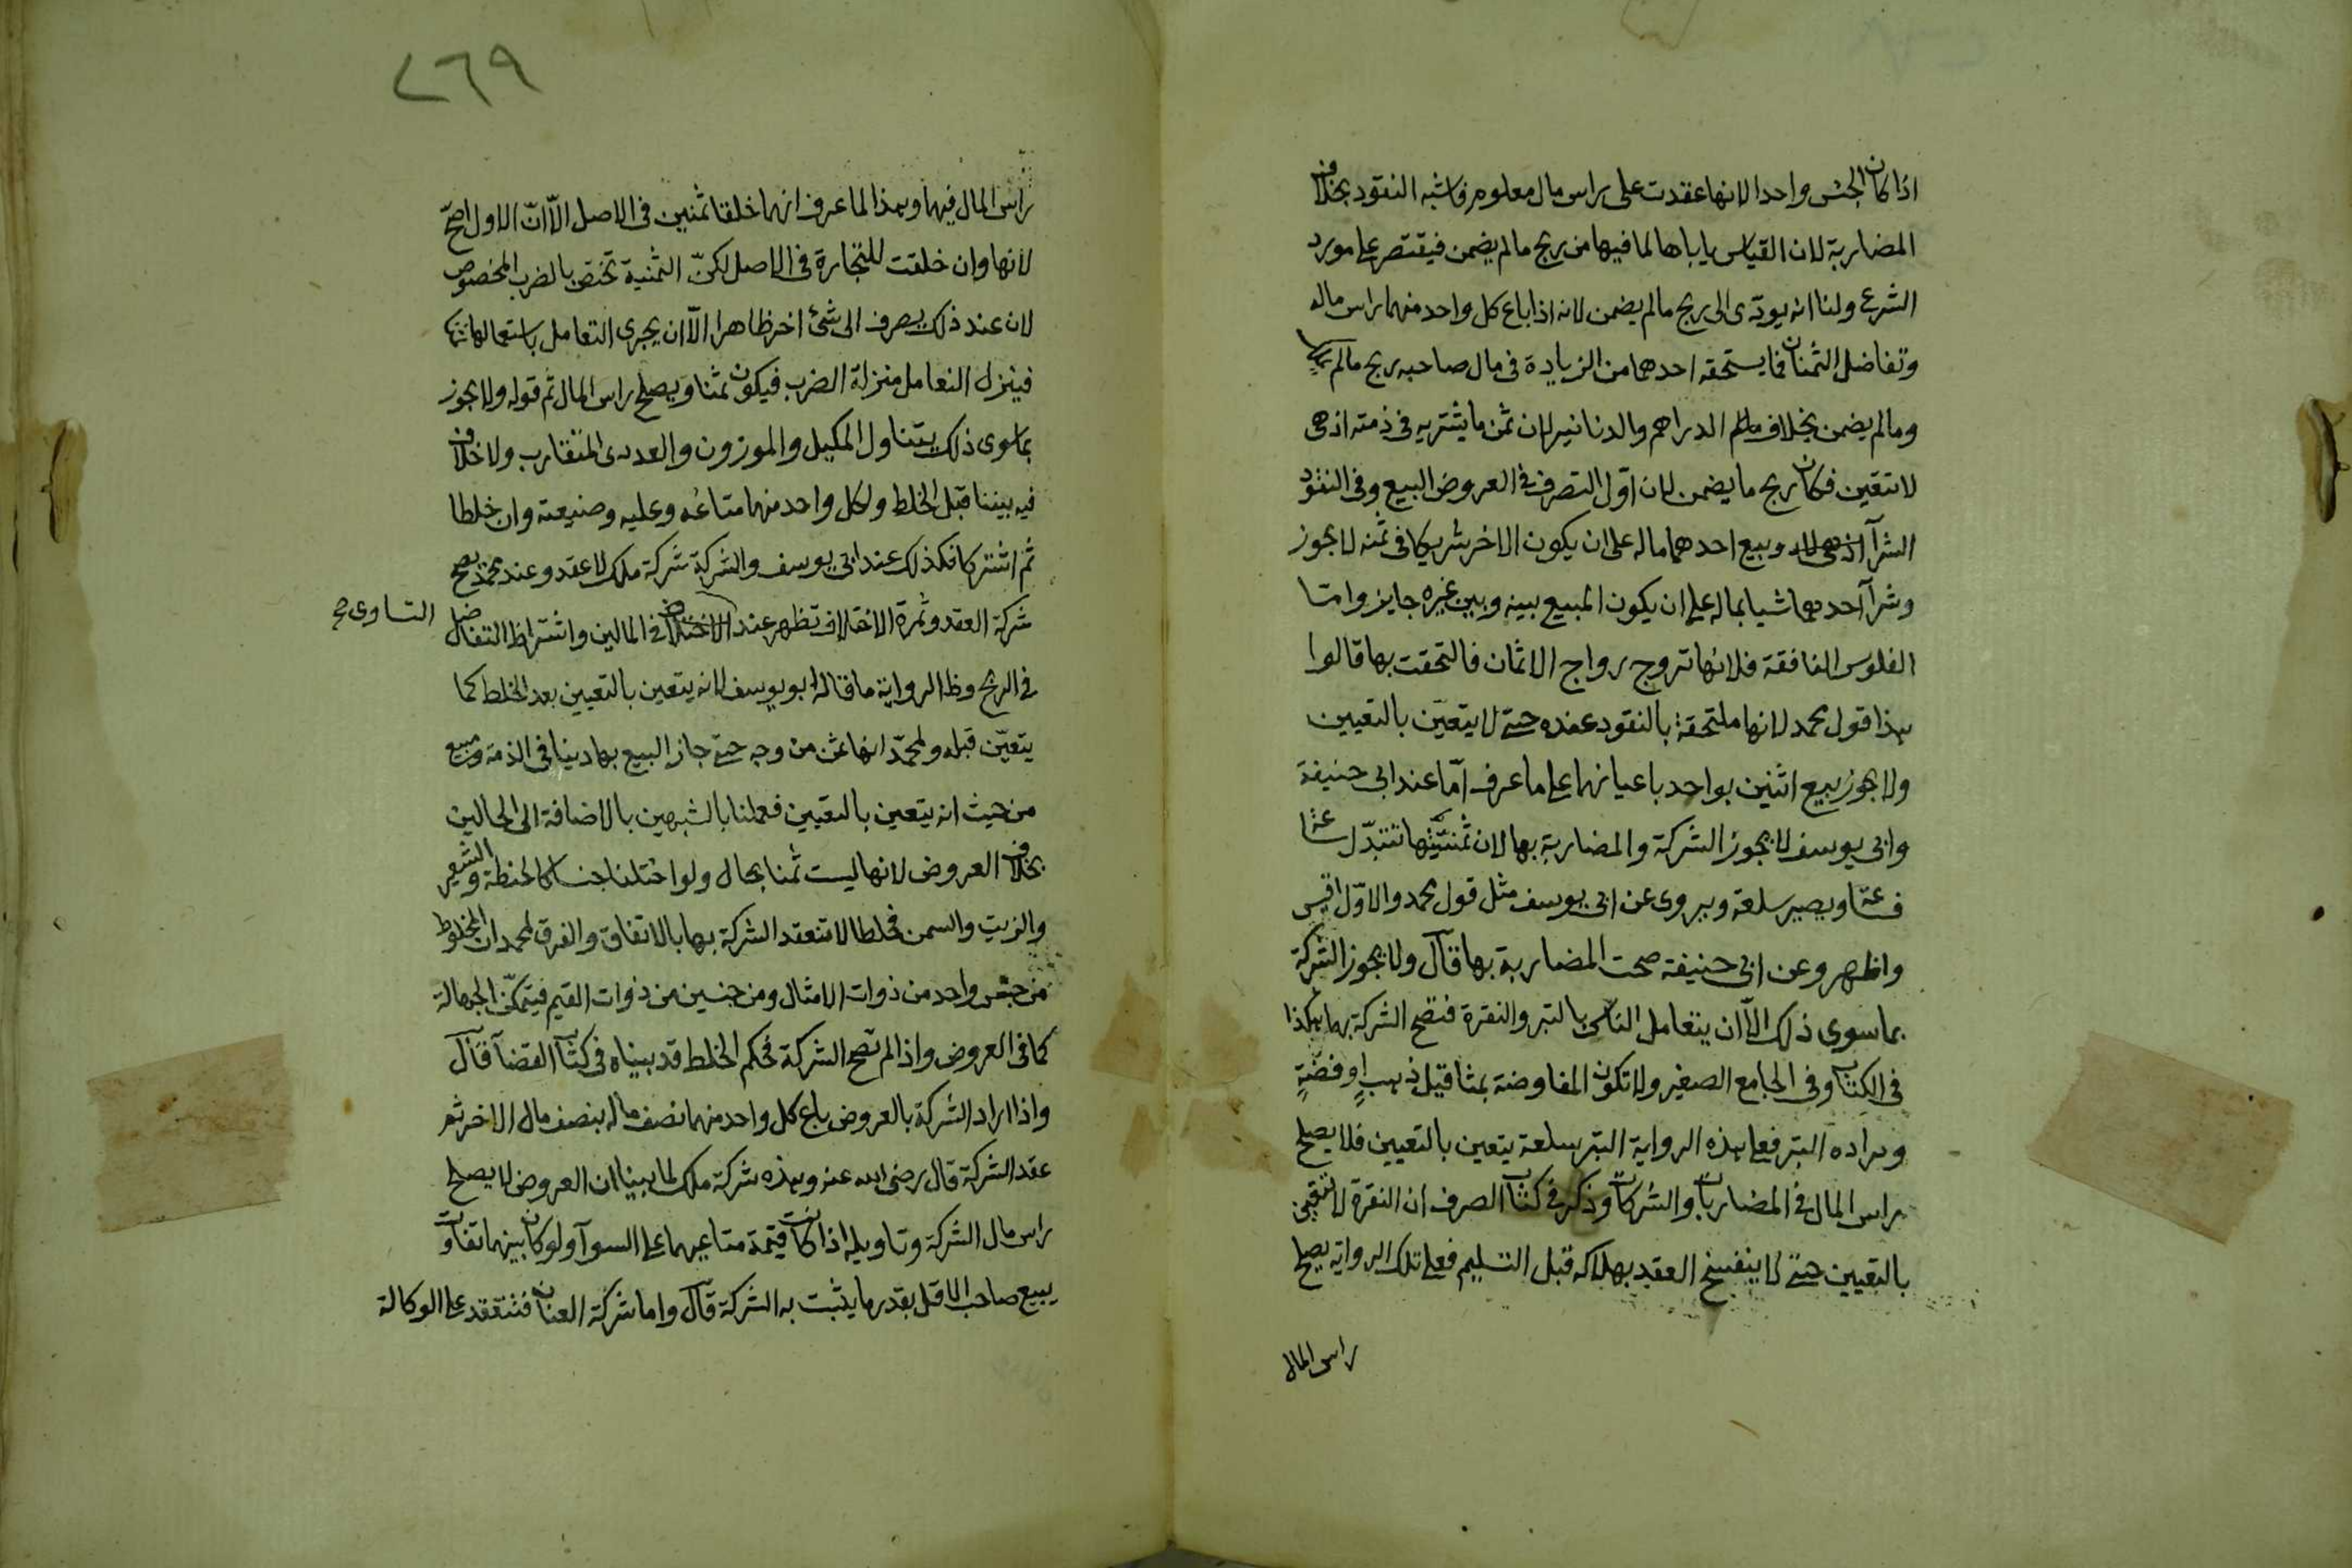 اذا كان الجنس واحدا لانها عقدت على راس مال معلوم فاشبه النقود بخلاف
المضاربة لان القياس ياباها لما فيها من ربح مالم يضمن فيقتصر على مورد
الشرع ولنا انه يودى الى ربح مالم يضمن لانه اذا باع كل واحد منهما راس ماله
وتفاضل الثمنان فما يستحقه احدهما من الزيادة فى مال صاحبه ربح مالم يملك
ومالم يضمن بخلاف الدراهم والدنانير لان ثمن ما يشتريه فى ذمته اذ هى
لا تتعين فكان ربح ما يضمن لان اوّل التصرف فى العروض البيع وفى النقود
الشرآ وبيع احدهما ماله على ان يكون الاخر شريكا فى ثمنه لا يجوز
وشرآ احدهما شيا بماله على ان يكون المبيع بينه وبين غيره جايز وامّا
الفلوس النافقة فلانها تروج رواج الاثمان فالتحقت بها قالوا
هذا قول محمد لانها ملتحقة بالنقود عنده حتى لا يتعيّن بالتعيين
ولا يجوز بيع اثنين بواحد باعيانهما على ما عرف امّا عند ابى حنيفة
وابى يوسف لا يجوز الشركة والمضاربة بها لان ثمنيّتها تتبدّل ساعة
فساعة ويصير سلعة ويروى عن ابى يوسف مثل قول محمد والاوّل اقيس
واظهر وعن ابى حنيفة صحت المضاربة بها قال ولا يجوز الشركة
بما سوى ذلك الّا ان يتعامل الناس بالتبر والنقرة فتصح الشركة بهما هكذا
فى الكتاب وفى الجامع الصغير ولا تكون المفاوضة بمثاقيل ذهبٍ او فضّةٍ
ومراده التبر فعلى هذه الرواية التبر سلعة يتعين بالتعيين فلا يصلح
راس المال فى المضاربات والشركات وذكر فى كتاب الصرف ان النقرة لا تتعين
بالتعيين حتى لا ينفسخ العقد بهلاكه قبل التسليم فعلى تلك الرواية يصلح
راس المال
٢٦٩
راس المال فيهما وهذا لما عرف انهما خلقا ثمنين فى الاصل الّا انّ الاول اصحّ
لانها وان خلقت للتجارة فى الاصل لكنّ الثمنية تختص بالضرب المخصوص
لان عند ذلك يصرف الى شئ اخر ظاهرا الّا ان يجرى التعامل باستعمالهما ثمنا
فينزل التعامل منزلة الضرب فيكون ثمنا ويصلح راس المال ثم قوله ولا يجوز
بما سوى ذلك يتناول المكيل والموزون والعددى المتقارب ولا خلاف
فيه بيننا قبل الخلط ولكل واحد منهما متاعه وعليه وضيعته وان خلطا
ثم اشتركا فكذلك عند ابى يوسف والشركة شركة ملك لا عقد وعند محمد يصح
شركة العقد وثمرة الاختلاف تظهر عند فى المالين واشتراط التفاضل
التساوى صح
فى الربح وظ الرواية ما قاله ابو يوسف لانه يتعين بالتعيين بعد الخلط كما
يتعيّن قبله ولمحمّد انها ثمن من وجه حتى جاز البيع بها دينا فى الذمة ومبيع
من حيث انه يتعين بالتعيين فعملنا بالشبهين بالاضافة الى الحالين
بخلاف العروض لانها ليست ثمنا بحال ولو اختلفا جنسا كالحنطة والشعير
والزيت والسمن فخلطا لا تنعقد الشركة بها بالاتفاق والفرق لمحمد ان المخلوط
من جنس واحد من ذوات الامثال ومن جنسين من ذوات القيم فيتمكّن الجهالة
كما فى العروض واذا لم تصح الشركة فحكم الخلط قد بيناه فى كتاب القضآ قال
واذا اراد الشركة بالعروض باع كل واحد منهما نصف ماله بنصف مال الاخر ثم
عقد الشركة قال رضى الله عنه وهذه شركة ملك لما بينا ان العروض لا يصلح
راس مال الشركة وتاويله اذا كانت قيمة متاعيهما على السوآ ولو كان بينهما تفاوت
يبيع صاحب الاقل بقدر ما يثبت به الشركة قال واما شركة العنان فتنعقد على الوكالة